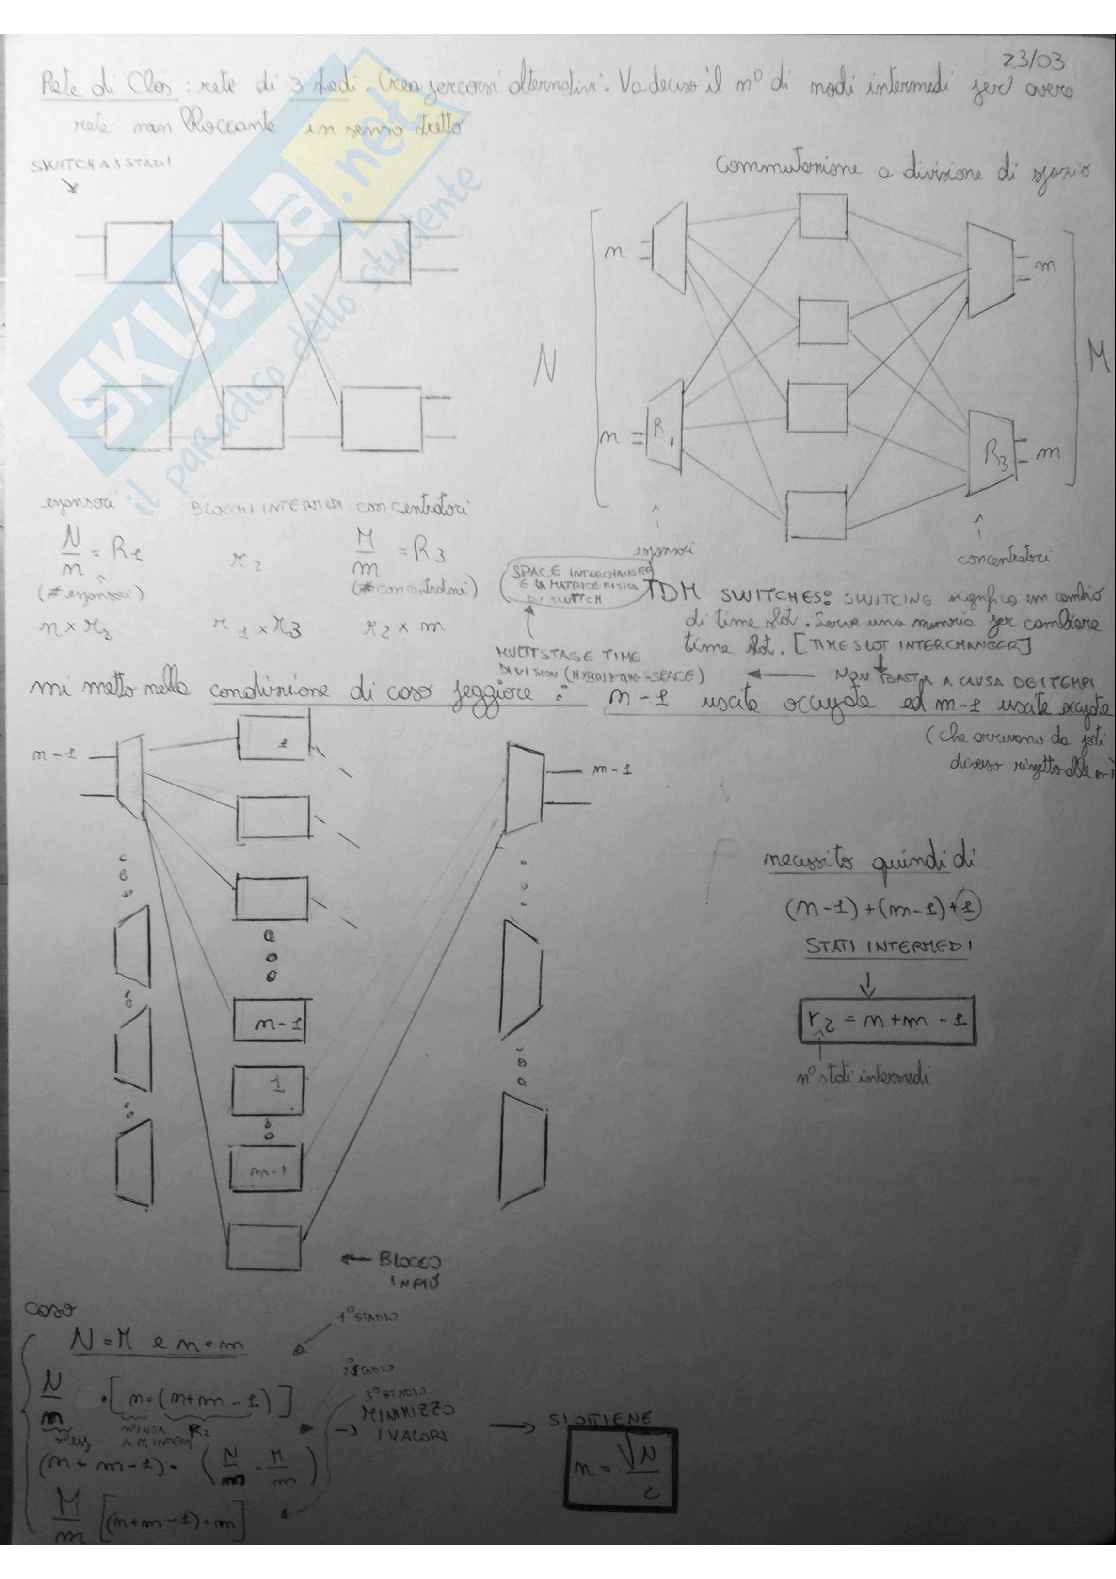 23/03
Rete di Clos : rete di 3 stadi crea percorsi alternativi. Va deciso il n° di nodi intermedi per avere
rete non bloccante in senso stretto
SWITCH A 3 STADI
Commutazione a divisione di spazio
n
m
N
M
n
R1
R3
m
espansori
concentratori
espansori BLOCCHI INTERMEDI concentratori
N/n = R1
r2
M/m = R3
(# espansori)
(# concentratori)
n x r2
r1 x r3
r2 x m
SPACE INTERCHANGER
È LA MATRICE FISICA
DI SWITCH
TDM SWITCHES: SWITCING significa un cambio
di time slot. Serve una memoria per cambiare
time slot. [TIME SLOT INTERCHANGER]
MULTISTAGE TIME
DIVISION
NON BASTA A CAUSA DEI TEMPI
mi metto nella condizione di caso peggiore: n-1 uscite occupate ed m-1 uscite occupate
(che arrivano da posti
diverso rispetto alle n-1
n-1
1
m-1
n-1
1
m-1
BLOCCO
IN PIÙ
necessito quindi di
(n-1)+(m-1)+1
STATI INTERMEDI
r2 = n+m-1
n° stati intermedi
caso
N=M e n=m
1° STADIO
2° STADIO
3° STADIO
N/n · [n·(n+m-1)]
R2
(n+m-1) · (N/n · M/m)
M/m [(n+m-1)·m]
MINIMIZZO
I VALORI
SI OTTIENE
n = √N/2
SKUOLA.net
il paradiso dello studente